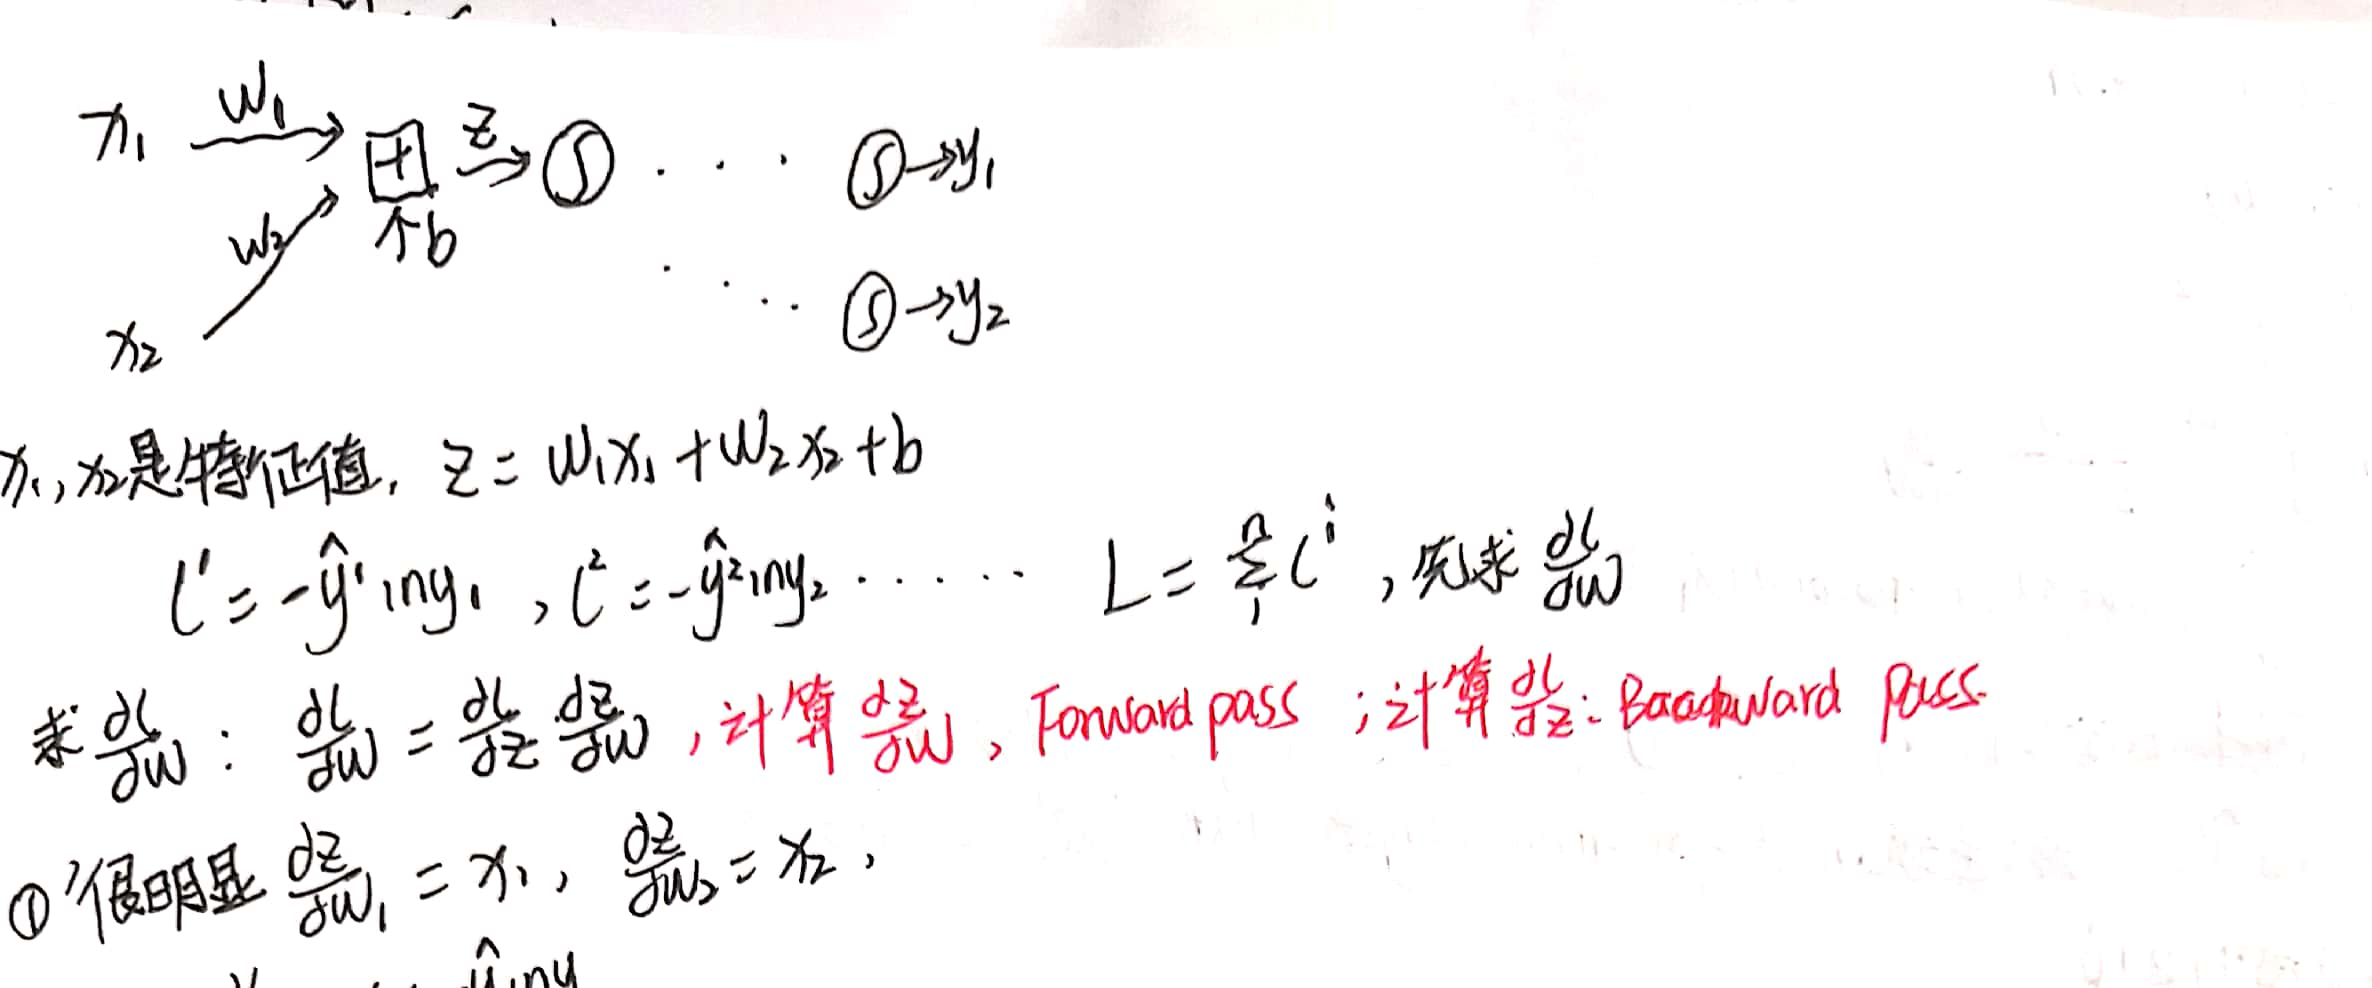 x₁ w₁ + z ∫ · · · ∫ → y₁
w₂ ↑b
x₂ · ... ∫ → y₂
x₁, x₂是特征值, z = w₁x₁ + w₂x₂ + b
l¹ = -ŷ¹lny₁, l² = -ŷ²lny₂ ······ L = Σ₁ⁿ lⁱ, 先求 ∂l/∂w
求 ∂l/∂w : ∂l/∂w = ∂l/∂z ∂z/∂w, 计算 ∂z/∂w, Forward pass ; 计算 ∂l/∂z : Backward pass.
① 很明显 ∂z/∂w₁ = x₁, ∂z/∂w₂ = x₂,